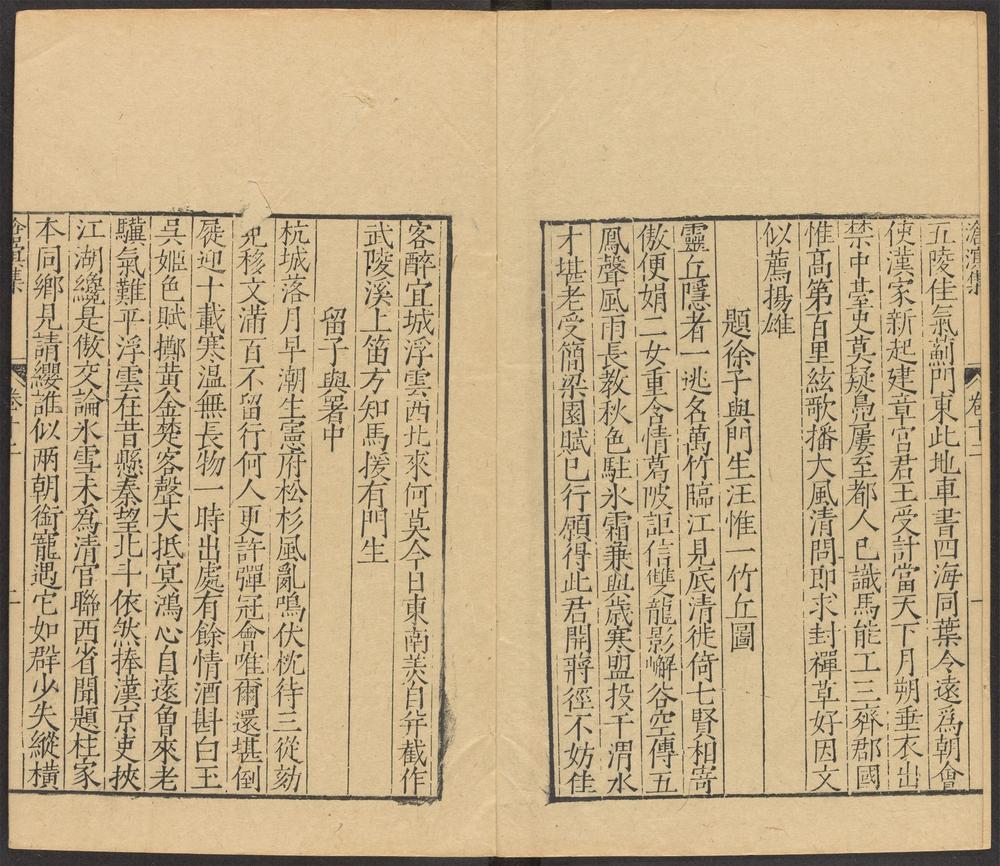 滄溟集 卷十二 一
五陵佳氣薊門東此地車書四海同葉令遠爲朝會
使漢家新起建章宮君王受計當天下月朔垂衣出
禁中臺吏莫疑鳧屢至都人已識馬能工三齊郡國
惟高第百里絃歌播大風清問即求封禪草好因文
似薦揚雄
題徐子與門生汪惟一竹丘圖
靈丘隱者一逃名萬竹臨江見底清徙倚七賢相寄
傲便娟二女重含情葛陂詎信雙龍影嶰谷空傳五
鳳聲風雨長教秋色駐氷霜兼與歲寒盟投干渭水
才堪老受簡梁園賦已行願得此君開蔣徑不妨佳
客醉宜城浮雲西北來何莫今日東南美自年截作
武陵溪上笛方知馬援有門生
留子與署中
杭城落月早潮生憲府松杉風亂鳴伏枕待三從劾
免移文滿百不留行何人更許彈冠會唯爾還堪倒
屣迎十載寒温無長物一時出處有餘情酒斟白玉
吳姬色賦擲黃金楚客聲大抵冥鴻心自遠魯來老
驥氣難平浮雲在昔懸秦望北斗依然捧漢京吏挾
江湖纔是傲交論氷雪未爲清官聯西省開題柱家
本同鄉見請纓誰似兩朝銜寵遇它如群少失縱橫
卷十二 二